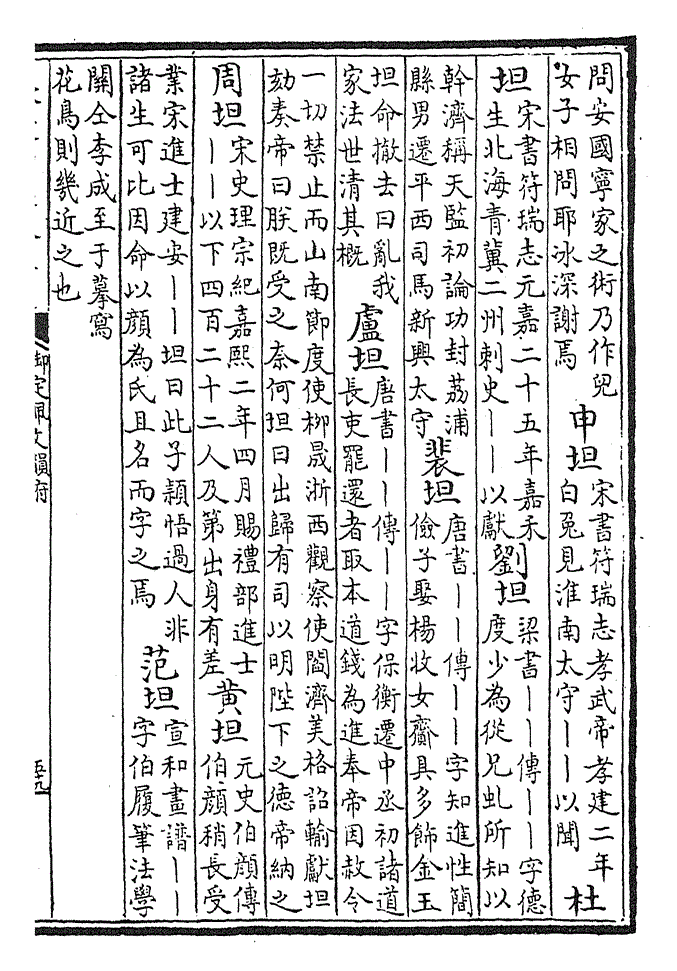 問安國寧家之術乃作兒
女子相問耶冰深謝焉
申坦
宋書符瑞志孝武帝孝建二年
白兔見淮南太守｜｜以聞
杜
坦
宋書符瑞志元嘉二十五年嘉禾
生北海青冀二州刺史｜｜以獻
劉坦
梁書｜｜傳｜｜字德
度少為從兄虬所知以
幹濟稱天監初論功封荔浦
縣男遷平西司馬新興太守
裴坦
唐書｜｜傳｜｜字知進性簡
儉子娶楊收女齎具多飾金玉
坦命撤去曰亂我
家法世清其概
盧坦
唐書｜｜傳｜｜字保衡遷中丞初諸道
長吏罷還者取本道錢為進奉帝因赦令
一切禁止而山南節度使柳晟浙西觀察使閻濟美格詔輸獻坦
劾奏帝曰朕既受之奈何坦曰出歸有司以明陛下之德帝納之
周坦
宋史理宗紀嘉熙二年四月賜禮部進士
｜｜以下四百二十二人及第出身有差
黄坦
元史伯顔傳
伯顔稍長受
業宋進士建安｜｜坦曰此子穎悟過人非
諸生可比因命以顔為氏且名而字之焉
范坦
宣和畫譜｜｜
字伯履筆法學
關仝李成至于摹寫
花鳥則幾近之也
御定佩文韻府